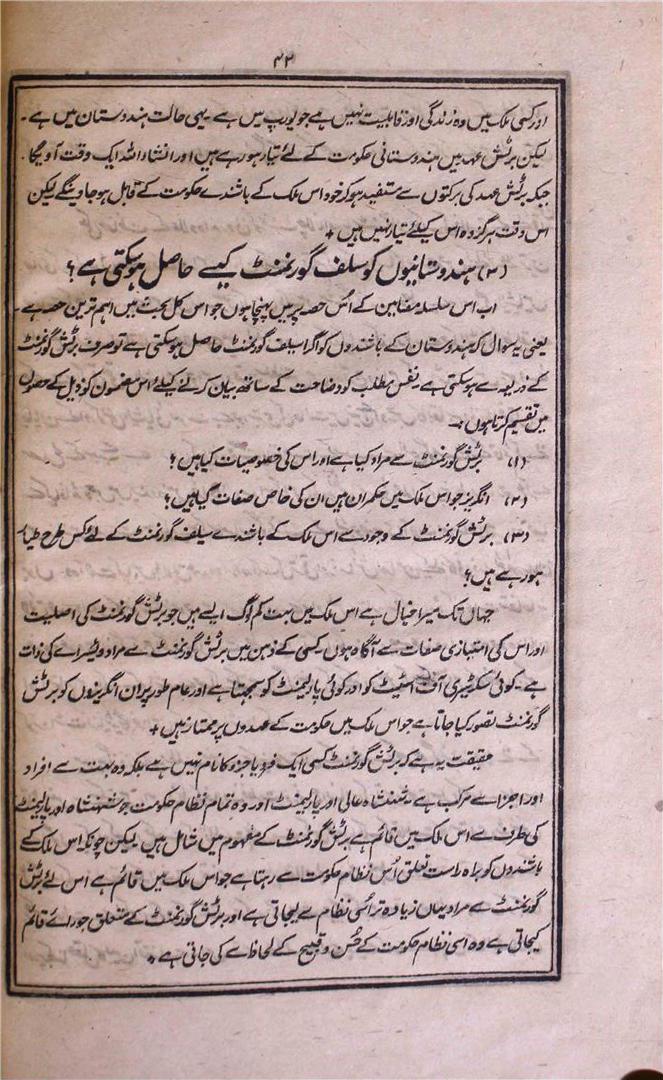 ۴۳
اور کسی ملک میں وہ زندگی اور قابلیت نہیں ہے جو یورپ میں ہے ۔ یہی حالت ہندوستان میں ہے ۔
لیکن برٹش عہد میں ہندوستانی حکومت کے لئے تیار ہو رہے ہیں اور انشاء اللہ ایک وقت آویگا ۔
جبکہ برٹش عہد کی برکتوں سے مستفید ہو کر خود اس ملک کے باشندے حکومت کے قابل ہو جاوینگے لیکن
اس وقت ہرگز وہ اس کیلئے تیار نہیں ہیں +
(۲) ہندوستانیوں کو سلف گورنمنٹ کیسے حاصل ہوسکتی ہے ؟
اب اس سلسلہ مضامین کے اُس حصہ پر میں پہنچا ہوں جو اس کل بحث میں اہم ترین حصہ ہے ۔
یعنی یہ سوال کہ ہندوستان کے باشندوں کو اگر سیلف گورنمنٹ حاصل ہوسکتی ہے تو صرف برٹش گورنمنٹ
کے ذریعہ سے ہوسکتی ہے نفس مطلب کو وضاحت کے ساتھ بیان کرنے کیلئے اس مضمون کو ذیل کے حصوں
میں تقسیم کرتا ہوں :۔
(۱) برٹش گورنمنٹ سے مراد کیا ہے اور اس کی خصوصیات کیا ہیں ؟
(۲) انگریز جو اس ملک میں حکمران ہیں ان کی خاص صفات کیا ہیں ؟
(۳) برٹش گورنمنٹ کے وجود سے اس ملک کے باشندے سیلف گورنمنٹ کے لئے کس طرح طیار
ہو رہے ہیں ؟
جہاں تک میرا خیال ہے اس ملک میں بہت کم لوگ ایسے ہیں جو برٹش گورنمنٹ کی اصلیت
اور اس کی امتیازی صفات سے آگاہ ہوں کسی کے ذہن میں برٹش گورنمنٹ سے مراد ویسراے کی ذات
ہے ۔ کوئی سکرٹیری آف اسٹیٹ کو اور کوئی پارلیمنٹ کو سمجہتا ہے اور عام طور پر ان انگریزوں کو برٹش
گورنمنٹ تصور کیا جاتا ہے جو اس ملک میں حکومت کے عہدوں پر ممتاز ہیں +
حقیقت یہ ہے کہ برٹش گورنمنٹ کسی ایک فرد یا جزو کا نام نہیں ہے بلکہ وہ بہت سے افراد
اور اجزا سے مرکب ہے ۔ شہنشاہ عالی اور پارلیمنٹ اور وہ تمام نظام حکومت جو شہنشاہ اور پارلیمنٹ
کی طرف سے اس ملک میں قائم ہے برٹش گورنمنٹ کے مفہوم میں شامل ہیں لیکن چونکہ اس ملک کے
باشندوں کو براہ راست تعلق اُس نظام حکومت سے رہتا ہے جو اس ملک میں قائم ہے اس لئے برٹش
گورنمنٹ سے مراد یہاں زیادہ تر اسی نظام سے لیجاتی ہے اور برٹش گورنمنٹ کے متعلق جو رائے قائم
کیجاتی ہے وہ اسی نظام حکومت کے حُسن و قبیح کے لحاظ سے کی جاتی ہے +